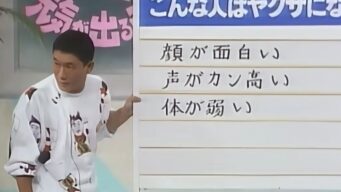 こんな人はヤクザにな
が出る
顔が面白い
声がカン高い
体が弱い